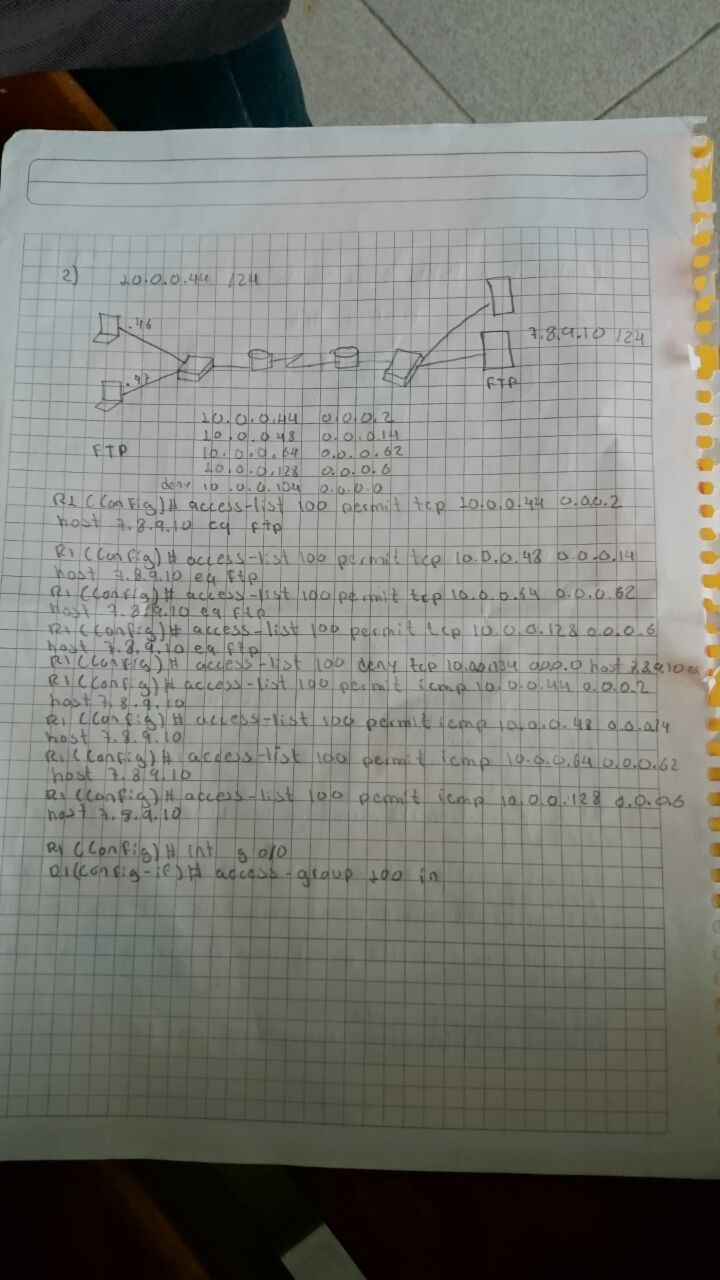 2) 10.0.0.44 /24
.46
7.8.9.10 /24
.47
FTP
10.0.0.44 0.0.0.2
10.0.0.48 0.0.0.14
FTP 10.0.0.64 0.0.0.62
10.0.0.128 0.0.0.6
deny 10.0.0.134 0.0.0.0
R1 (Config)# access-list 100 permit tcp 10.0.0.44 0.0.0.2
host 7.8.9.10 eq ftp
R1 (Config)# access-list 100 permit tcp 10.0.0.48 0.0.0.14
host 7.8.9.10 eq ftp
R1 (Config)# access-list 100 permit tcp 10.0.0.64 0.0.0.62
host 7.8.9.10 eq ftp
R1 (Config)# access-list 100 permit tcp 10.0.0.128 0.0.0.6
host 7.8.9.10 eq ftp
R1 (Config)# access-list 100 deny tcp 10.0.0.134 0.0.0.0 host 7.8.9.10 eq
R1 (Config)# access-list 100 permit icmp 10.0.0.44 0.0.0.2
host 7.8.9.10
R1 (Config)# access-list 100 permit icmp 10.0.0.48 0.0.0.14
host 7.8.9.10
R1 (Config)# access-list 100 permit icmp 10.0.0.64 0.0.0.62
host 7.8.9.10
R1 (Config)# access-list 100 permit icmp 10.0.0.128 0.0.0.6
host 7.8.9.10
R1 (Config)# int g 0/0
R1(Config-if)# access-group 100 in